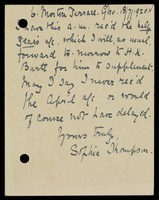 6. Morton Terrace. Glos. 18/7/1920
I have this a.m. rec'd the half
years a/c, which I will, as usual
forward to-morrow to H.K.
Barth for him to supplement.
May I say I never rec'd
the April a/c or would
of course not have delayed.
Yours truly,
Sophie Thompson.